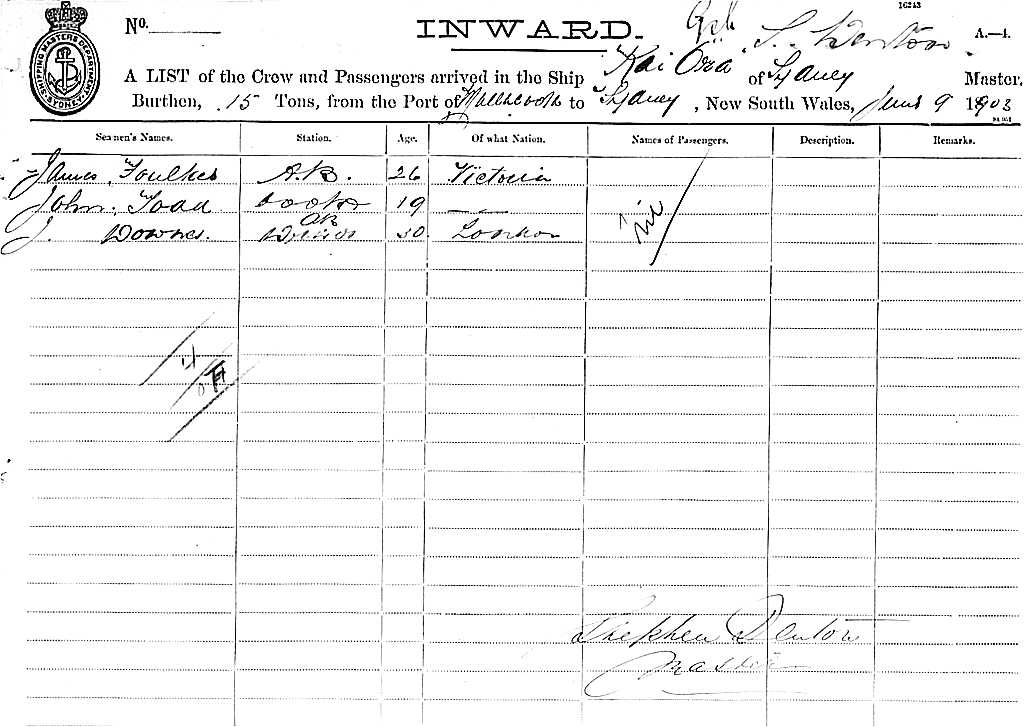 16243
No. INWARD. S. Denton A.—4.
A LIST of the Crew and Passengers arrived in the Ship Kai Ora of Sydney Master.
Burthen, 15 Tons, from the Port of to Sydney, New South Wales, June 9 1903
SHIPPING MASTERS DEPARTMENT
SYDNEY
Seamen's Names. Station. Age. Of what Nation. Names of Passengers. Description. Remarks.
James Foulkes A.B. 26 Victoria
John Todd Cook 19 —
J. Downes. AB 30 London
Nil
Stephen Denton
Master